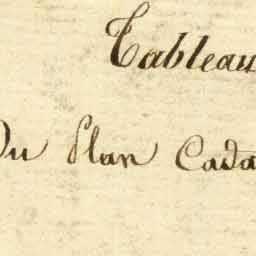 Tableau
Du Plan Cada